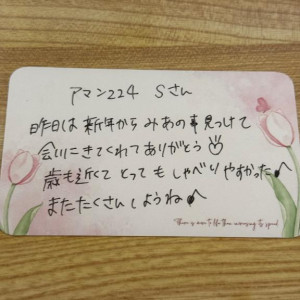 アマン224 Sさん
昨日は新年からみあの事見つけて
会いにきてくれてありがとう
歳も近くてとってもしゃべりやすかった♪
またたくさんしようね♪
There is more to life than increasing its speed